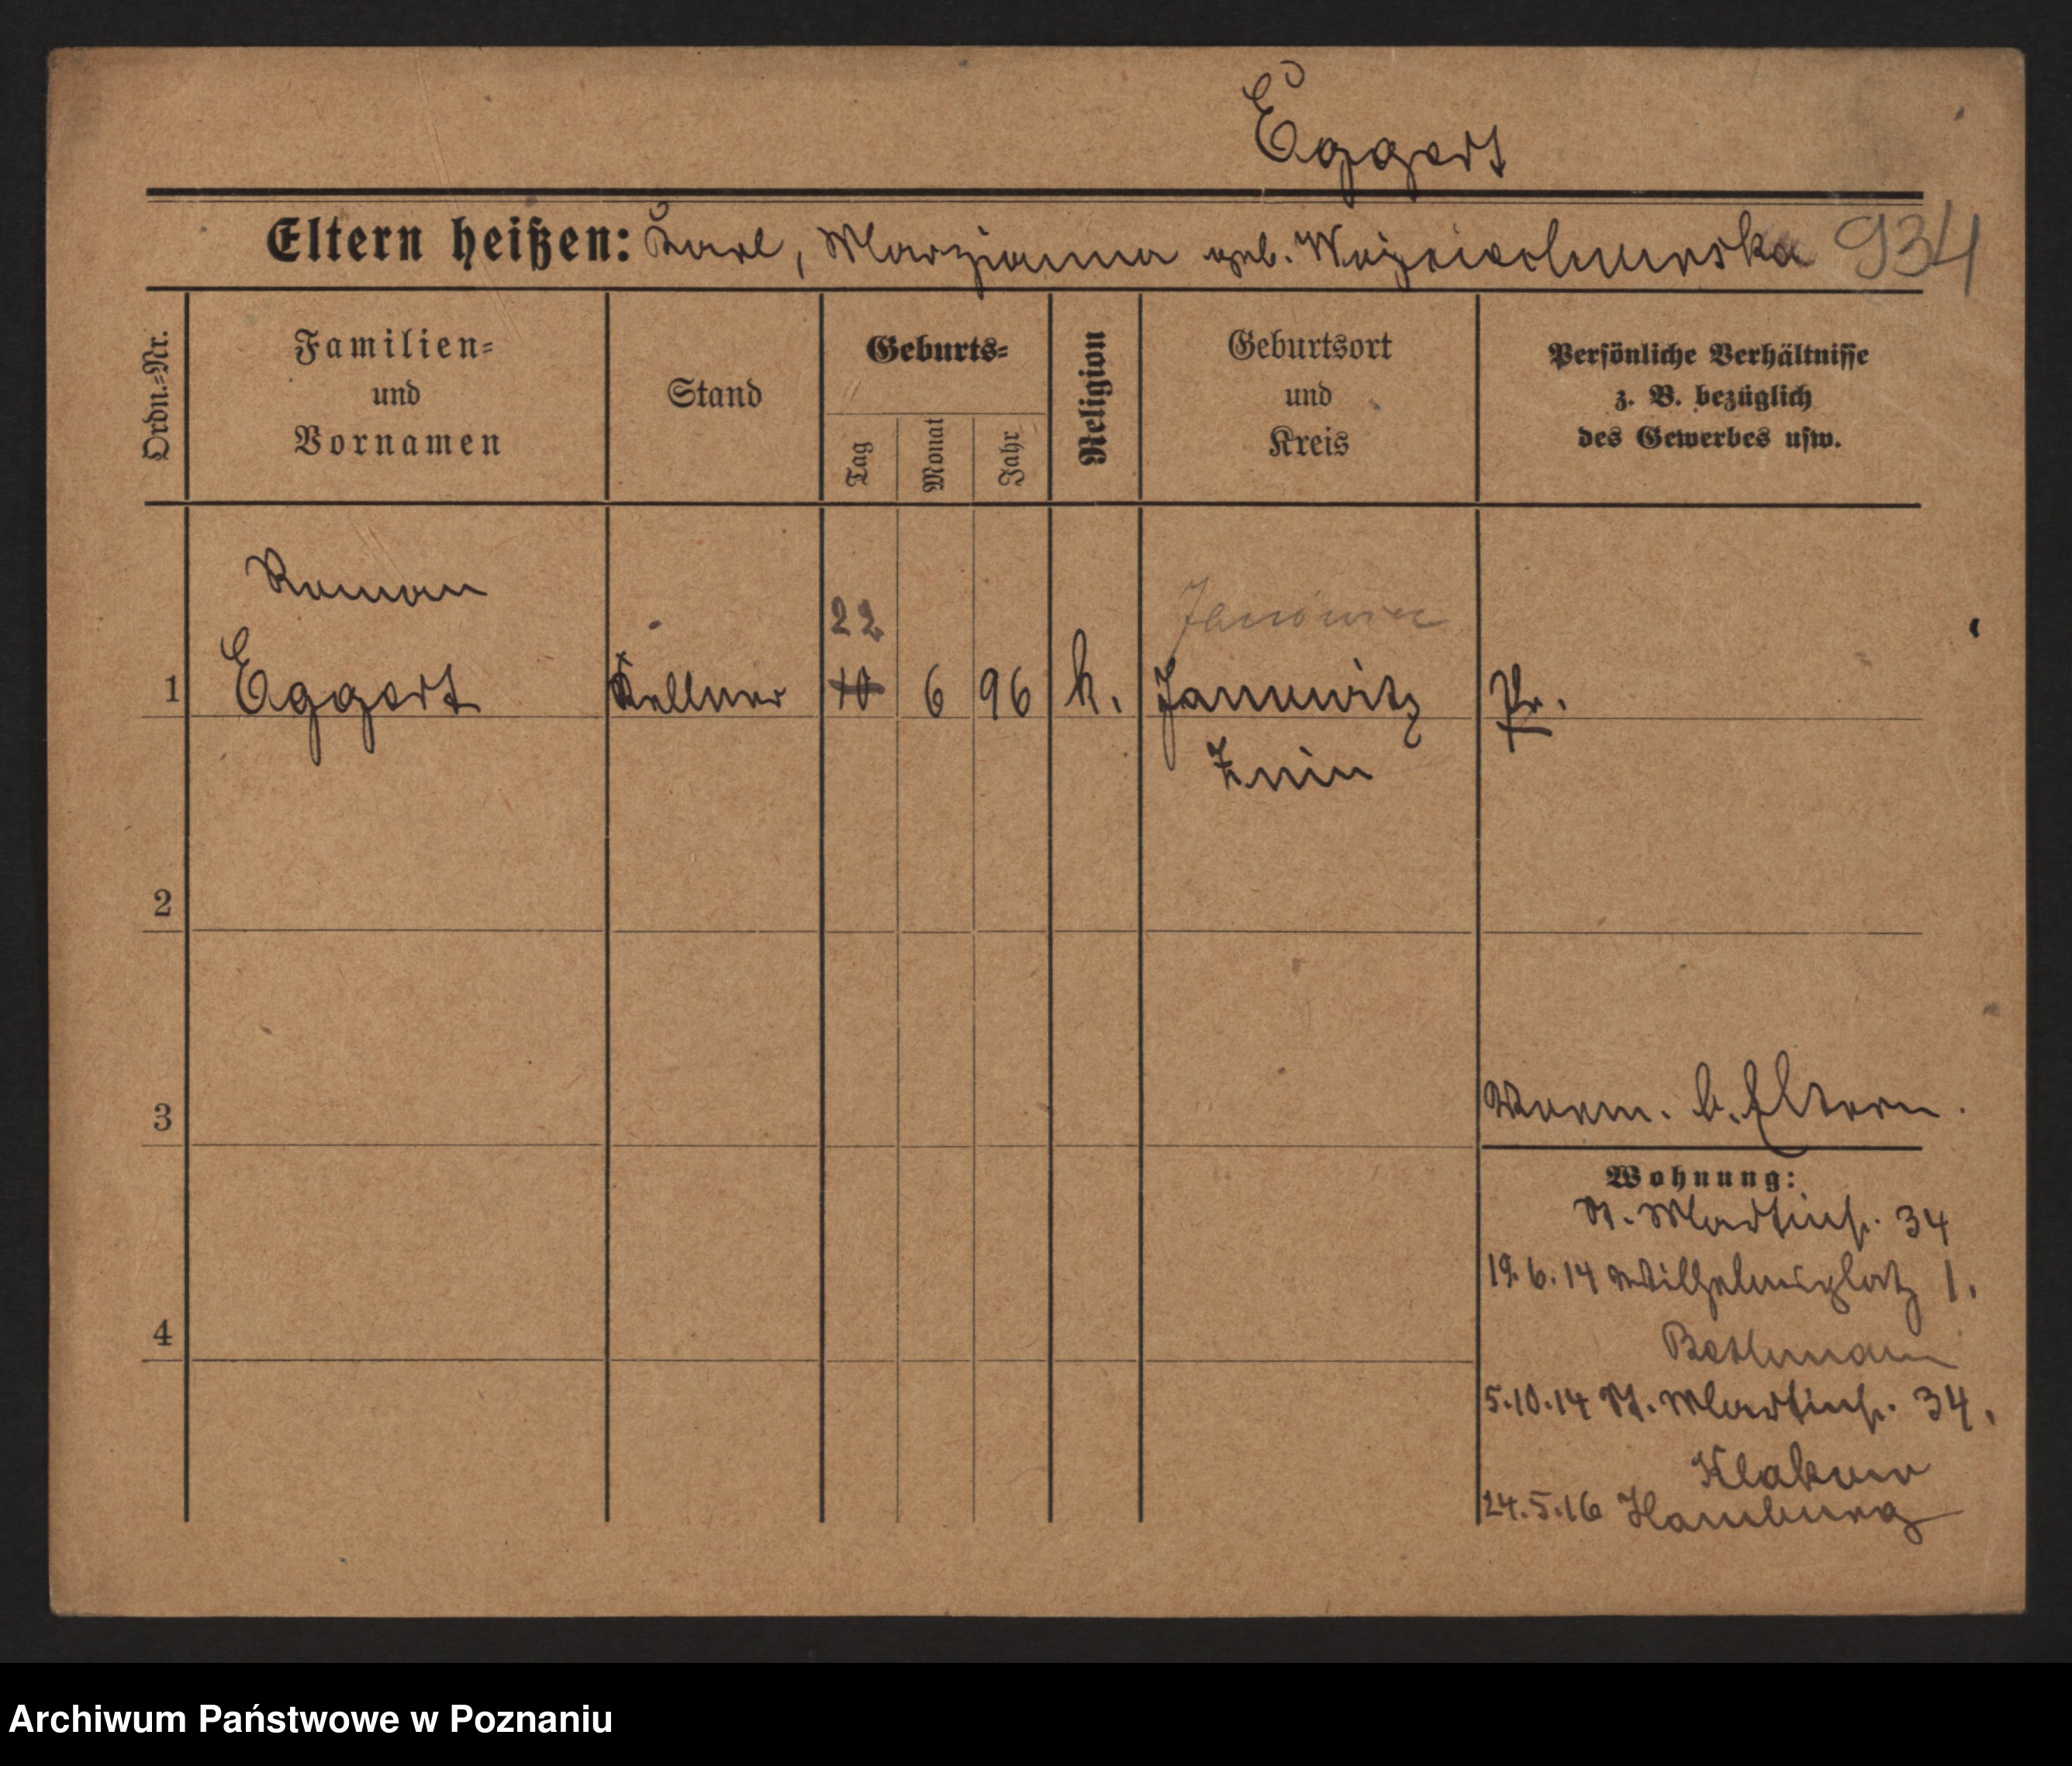 Eggert
Eltern heißen: Karl, Marzianna geb. 934
Ordn.=Nr.
Familien=
und
Vornamen
Stand
Geburts=
Tag
Monat
Jahr
Religion
Geburtsort
und
Kreis
Persönliche Verhältnisse
z. B. bezüglich
des Gewerbes usw.
Roman
22
Janowiec
1 Eggert Kellner 10 6 96 k. Janowitz Pr.
Znin
2
3
Vorm. b. Eltern.
Wohnung:
St. Martinstr. 34
19.6.14 Wilhelmsplatz 1.
4
Bethmann
5.10.14 St. Martinstr. 34.
24.5.16 Hamburg
Archiwum Państwowe w Poznaniu